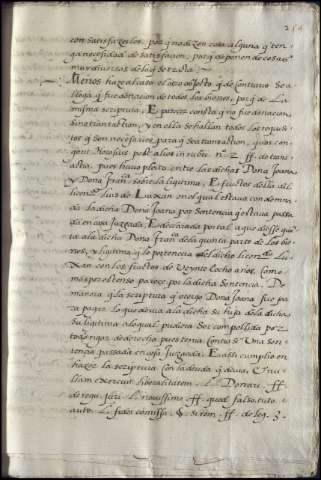 con satisfazerlos, por q̃ no dizen cosa alguna q̃ ten
ga necesidad de satisfaçion, por q̃ se ponen de cosas
muy diuersas de la q̃ se trata
Menos haze al caso el otro de q̃ de contrario se a
llega q̃ fue donacion de todos los bienes, por q̃ de la
misma scriptura, E proceso consta q̃ no fue donacion
sino transaction, y en ella se hallan todos los requisi
tos q̃ son necesarios para q̃ sea transaction,
ff. de trans
actio. pues hauia pleyto entre las dichas Doña Joana
y Doña Fran.ca sobre la ligitima, E fructos della del
licen.do Luis de Luxan en el qual estaua condenada
la dicha Doña Joana por sentencia q̃ estaua pasa
da en cosa juzgada, E declarada por tal a que diesse que
ta a la dicha Doña Fran.ca de la quinta parte de los bie
nes, y ligitima q̃ le pertenecia del dicho licen.do Lu
xan con los fructos de veynte e ocho años Como
mas por estenso parece por la dicha sentencia. De
manera q̃ la scriptura q̃ otorgo Doña Joana fue pa
ra pagar lo que deuia a la dicha su hija de la dicha
su ligitima a lo qual pudiera ser compellida por
todo rigor de derecho pues tenia contra si Una sen
tencia passada en cosa juzgada. E assi cumplio en
hazer la scriptura con la deuda q̃ deuia. Et nu
llam exercuit liberalitatem. L. Donari. ff.
de regu. juri. L. nouissime. ff. quod falso. tuto.
auto. L. fidei comissa. §. si rem. ff. de leg. 3.